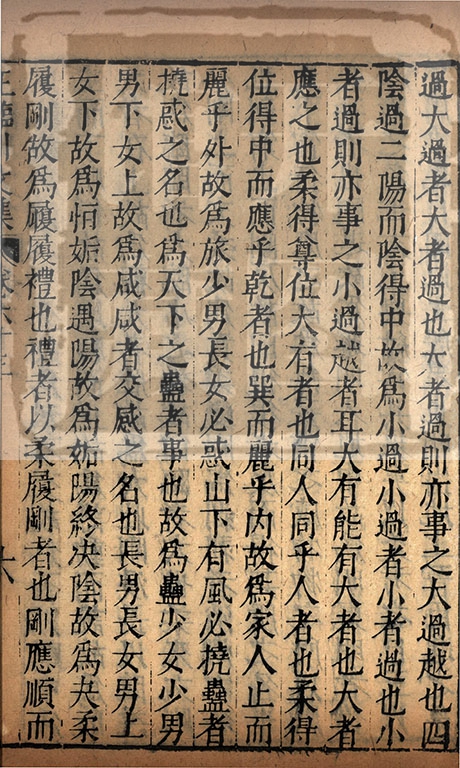 過大過者大者過也大者過則亦事之大過越也四
陰過二陽而陰得中故爲小過小過者小者過也小
者過則亦事之小過越者耳大有能有大者也大者
應之也柔得尊位大有者也同人同乎人者也柔得
位得中而應乎乾者也巽而麗乎内故爲家人止而
麗乎外故爲旅少男長女必惑山下有風必撓蠱者
撓惑之名也爲天下之蠱者事也故爲蠱少女少男
男下女上故爲咸咸者交感之名也長男長女男上
女下故爲恒姤陰遇陽故爲姤陽終决陰故爲夬柔
履剛故爲履履禮也禮者以柔履剛者也剛應順而
王臨川文集 卷六十三 六